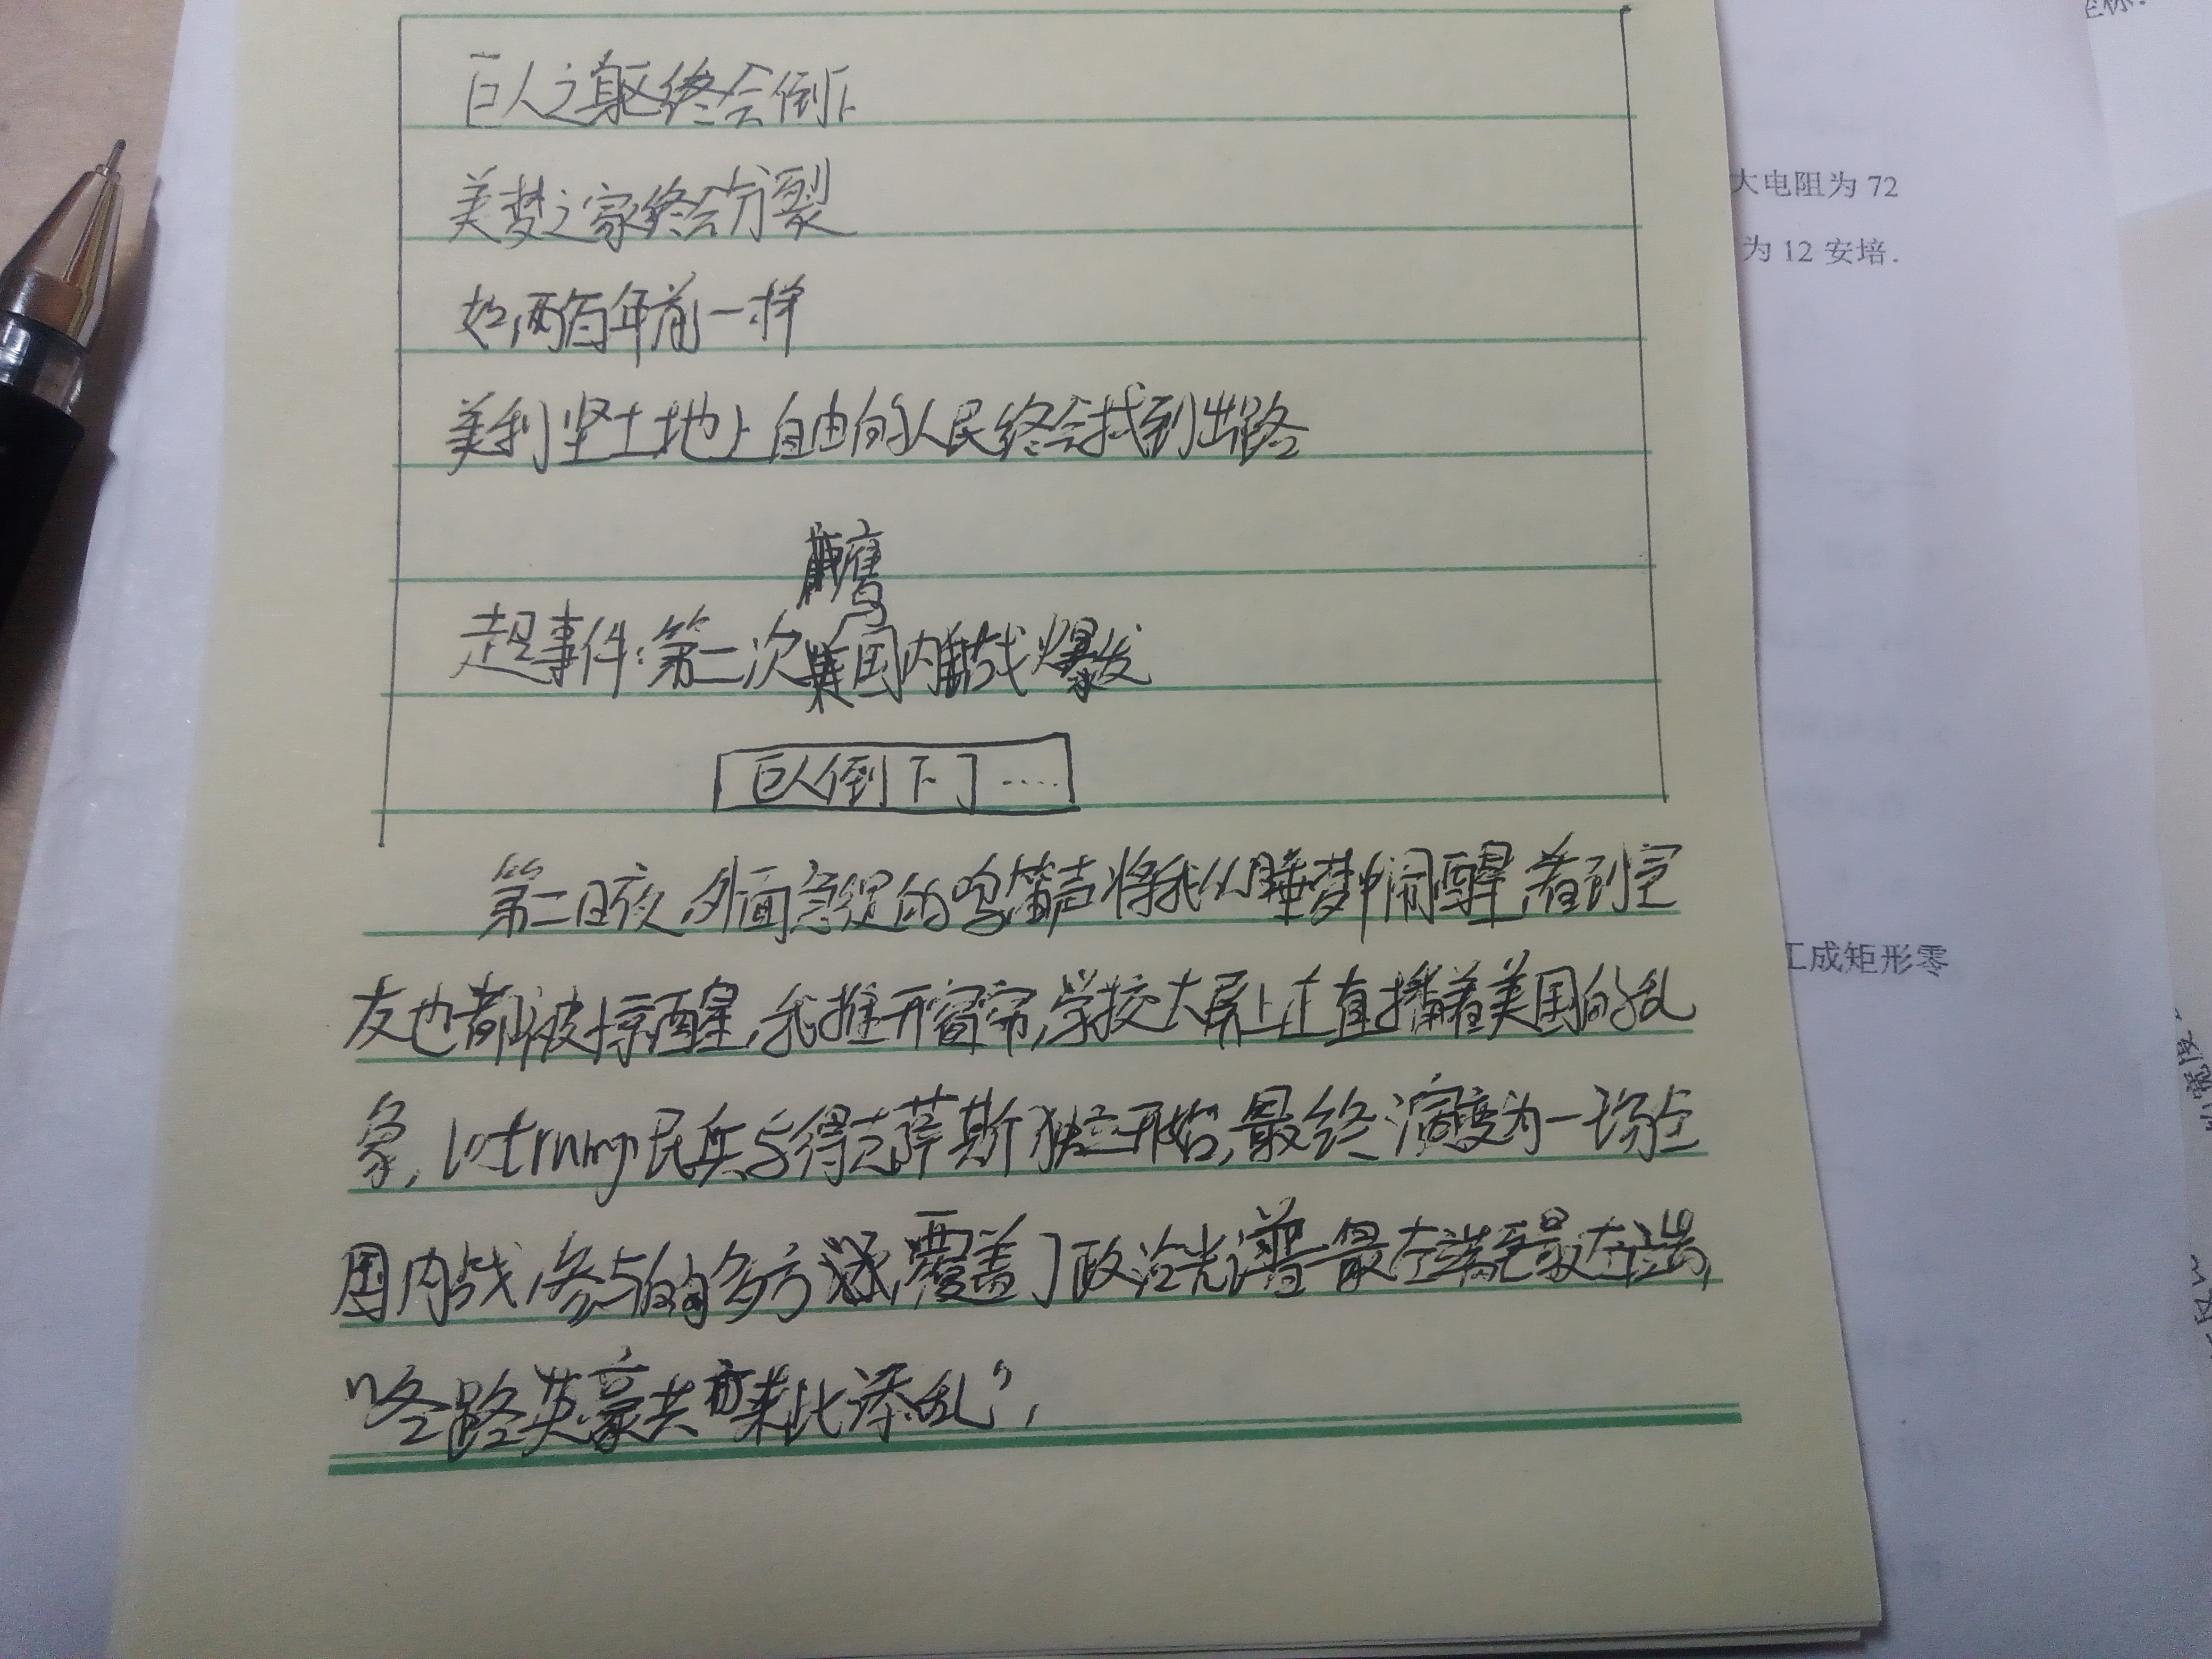 巨人之躯终会倒下
美梦之家终会分裂
如两百年前一样
美利坚土地上自由的人民终会找到出路
鹰
超事件:第二次美国内战爆发
巨人倒下了……
第二日夜,外面急促的鸣笛声将我从睡梦中闹醒,看到室
友也都被惊醒,我推开窗帘,学校大屏上正直播着美国的乱
象,以trump民兵与得克萨斯独立开始,最终演变为一场全
国内战,参与的多方 覆盖了政治光谱最左端至最右端,
"各路英豪共 来此添乱",
大电阻为 72
为 12 安培.
工成矩形零